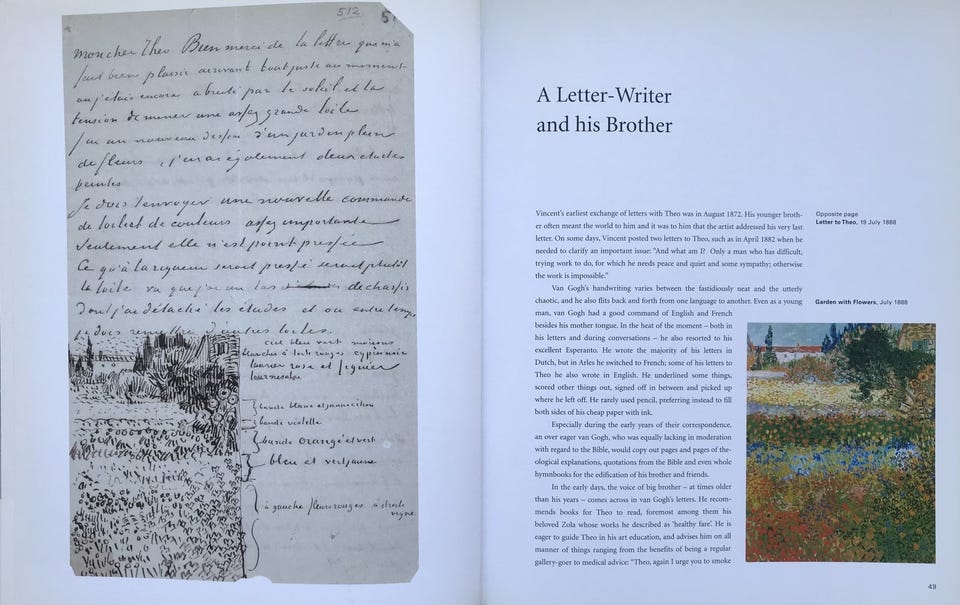 512
51
Mon cher Theo Bien merci de ta lettre qui m'a
fait bien plaisir arrivant tout juste au moment
où j'étais encore abruti par le soleil et la
tension de mener une assez grande toile
J'ai un nouveau dessin d'un jardin plein
de fleurs, j'en ai également deux etudes
peintes
Je dois t'envoyer une nouvelle commande
de toile et de couleurs assez importante
Seulement elle n'est point pressée
Ce qu'à la rigueur serait pressé serait plutôt
la toile vu que j'ai un tas de chassis
dont j'ai détaché les études et où entre temps
je dois remettre d'autres toiles.
ciel bleu vert maisons
blanche à toit rouges cyprès
laurier rose et figuier
tournesols
bande blanc et jaune citron
bande violette
bande orangé et vert
bleu et vert jaune
à gauche fleurs rouges à droite
vigne
A Letter-Writer
and his Brother
Vincent's earliest exchange of letters with Theo was in August 1872. His younger broth-
er often meant the world to him and it was to him that the artist addressed his very last
letter. On some days, Vincent posted two letters to Theo, such as in April 1882 when he
needed to clarify an important issue: "And what am I? Only a man who has difficult,
trying work to do, for which he needs peace and quiet and some sympathy; otherwise
the work is impossible."
Van Gogh's handwriting varies between the fastidiously neat and the utterly
chaotic, and he also flits back and forth from one language to another. Even as a young
man, van Gogh had a good command of English and French
besides his mother tongue. In the heat of the moment – both in
his letters and during conversations – he also resorted to his
excellent Esperanto. He wrote the majority of his letters in
Dutch, but in Arles he switched to French; some of his letters to
Theo he also wrote in English. He underlined some things,
scored other things out, signed off in between and picked up
where he left off. He rarely used pencil, preferring instead to fill
both sides of his cheap paper with ink.
Especially during the early years of their correspondence,
an over eager van Gogh, who was equally lacking in moderation
with regard to the Bible, would copy out pages and pages of the-
ological explanations, quotations from the Bible and even whole
hymnbooks for the edification of his brother and friends.
In the early days, the voice of big brother – at times older
than his years – comes across in van Gogh's letters. He recom-
mends books for Theo to read, foremost among them his
beloved Zola whose works he described as 'healthy fare'. He is
eager to guide Theo in his art education, and advises him on all
manner of things ranging from the benefits of being a regular
gallery-goer to medical advice: "Theo, again I urge you to smoke
Opposite page
Letter to Theo, 19 July 1888
Garden with Flowers, July 1888
49